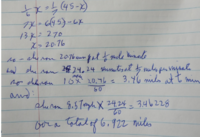 1/6 x = 1/7 (45-x)
7x = 6(45) - 6x
13x = 270
x = 20.76
so he ran 20.76 mn at 1/6 mile / minute
and he ran 24.24 minutes at 1/7 mile per minute
so he ran 10 x 20.76 / 60 = 3.46 mi at
and
he ran 8.57 mph x 24.24 / 60 = 3.46228
for a total of 6.922 miles